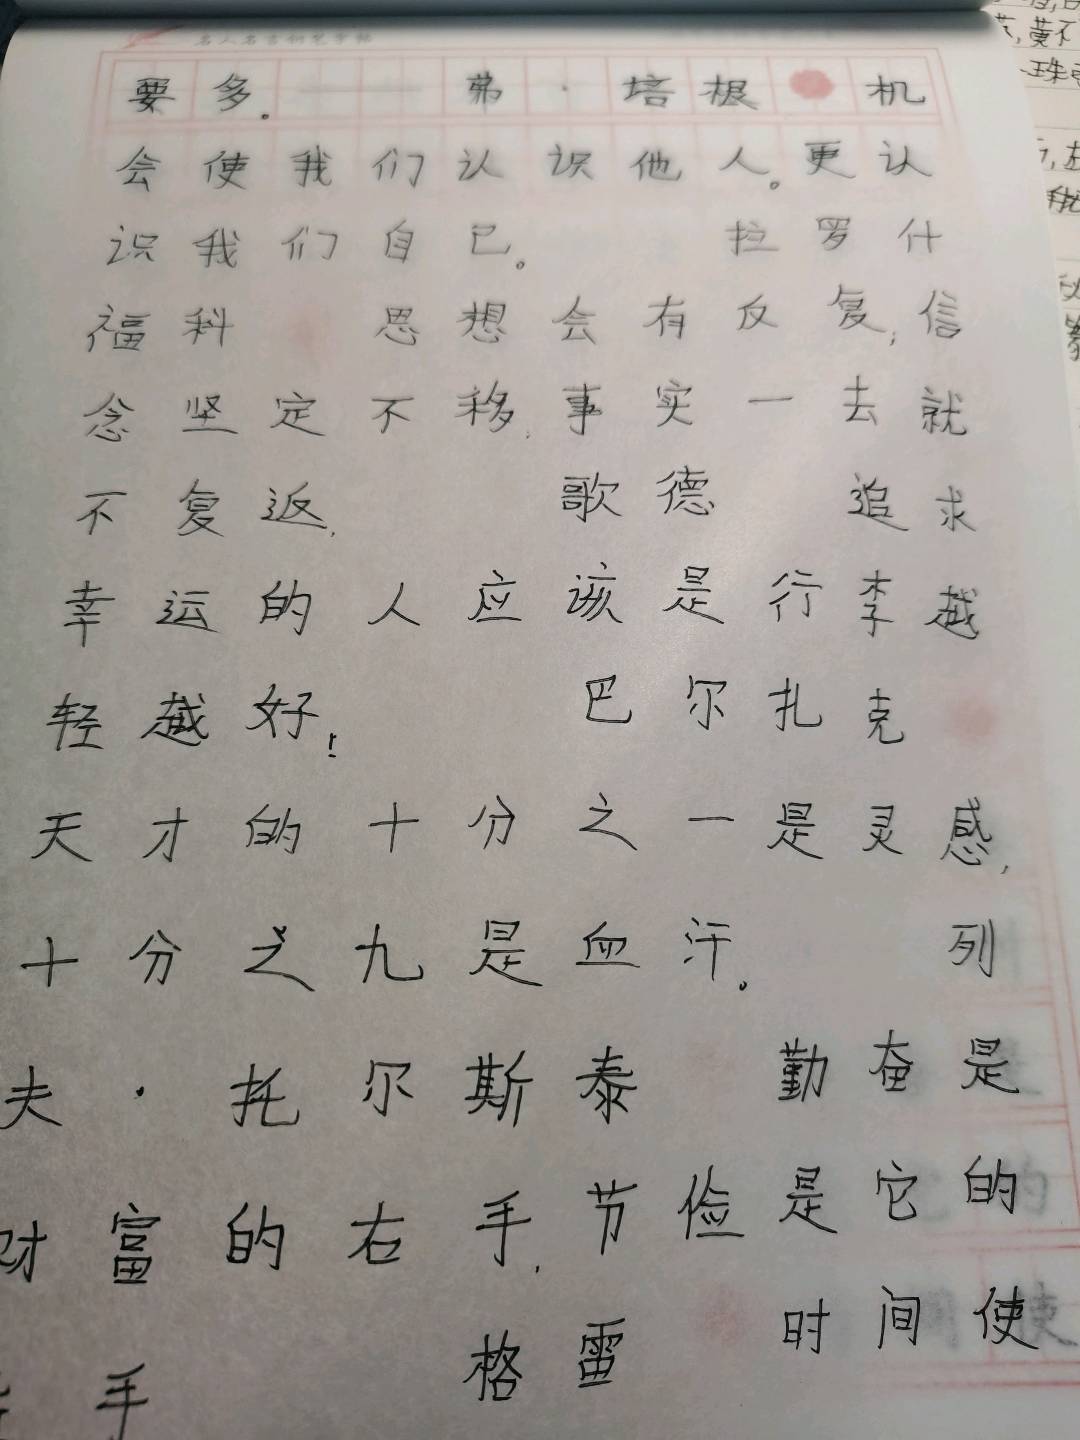 名人名言钢笔字帖
要多。——弗·培根 机
会使我们认识他人。更认
识我们自己。 拉罗什
福科 思想会有反复,信
念坚定不移,事实一去就
不复返. 歌德 追求
幸运的人应该是行李越
轻越好! 巴尔扎克
天才的十分之一是灵感,
十分之九是血汗。 列
夫·托尔斯泰 勤奋是
财富的右手,节俭是它的
手 格雷 时间使